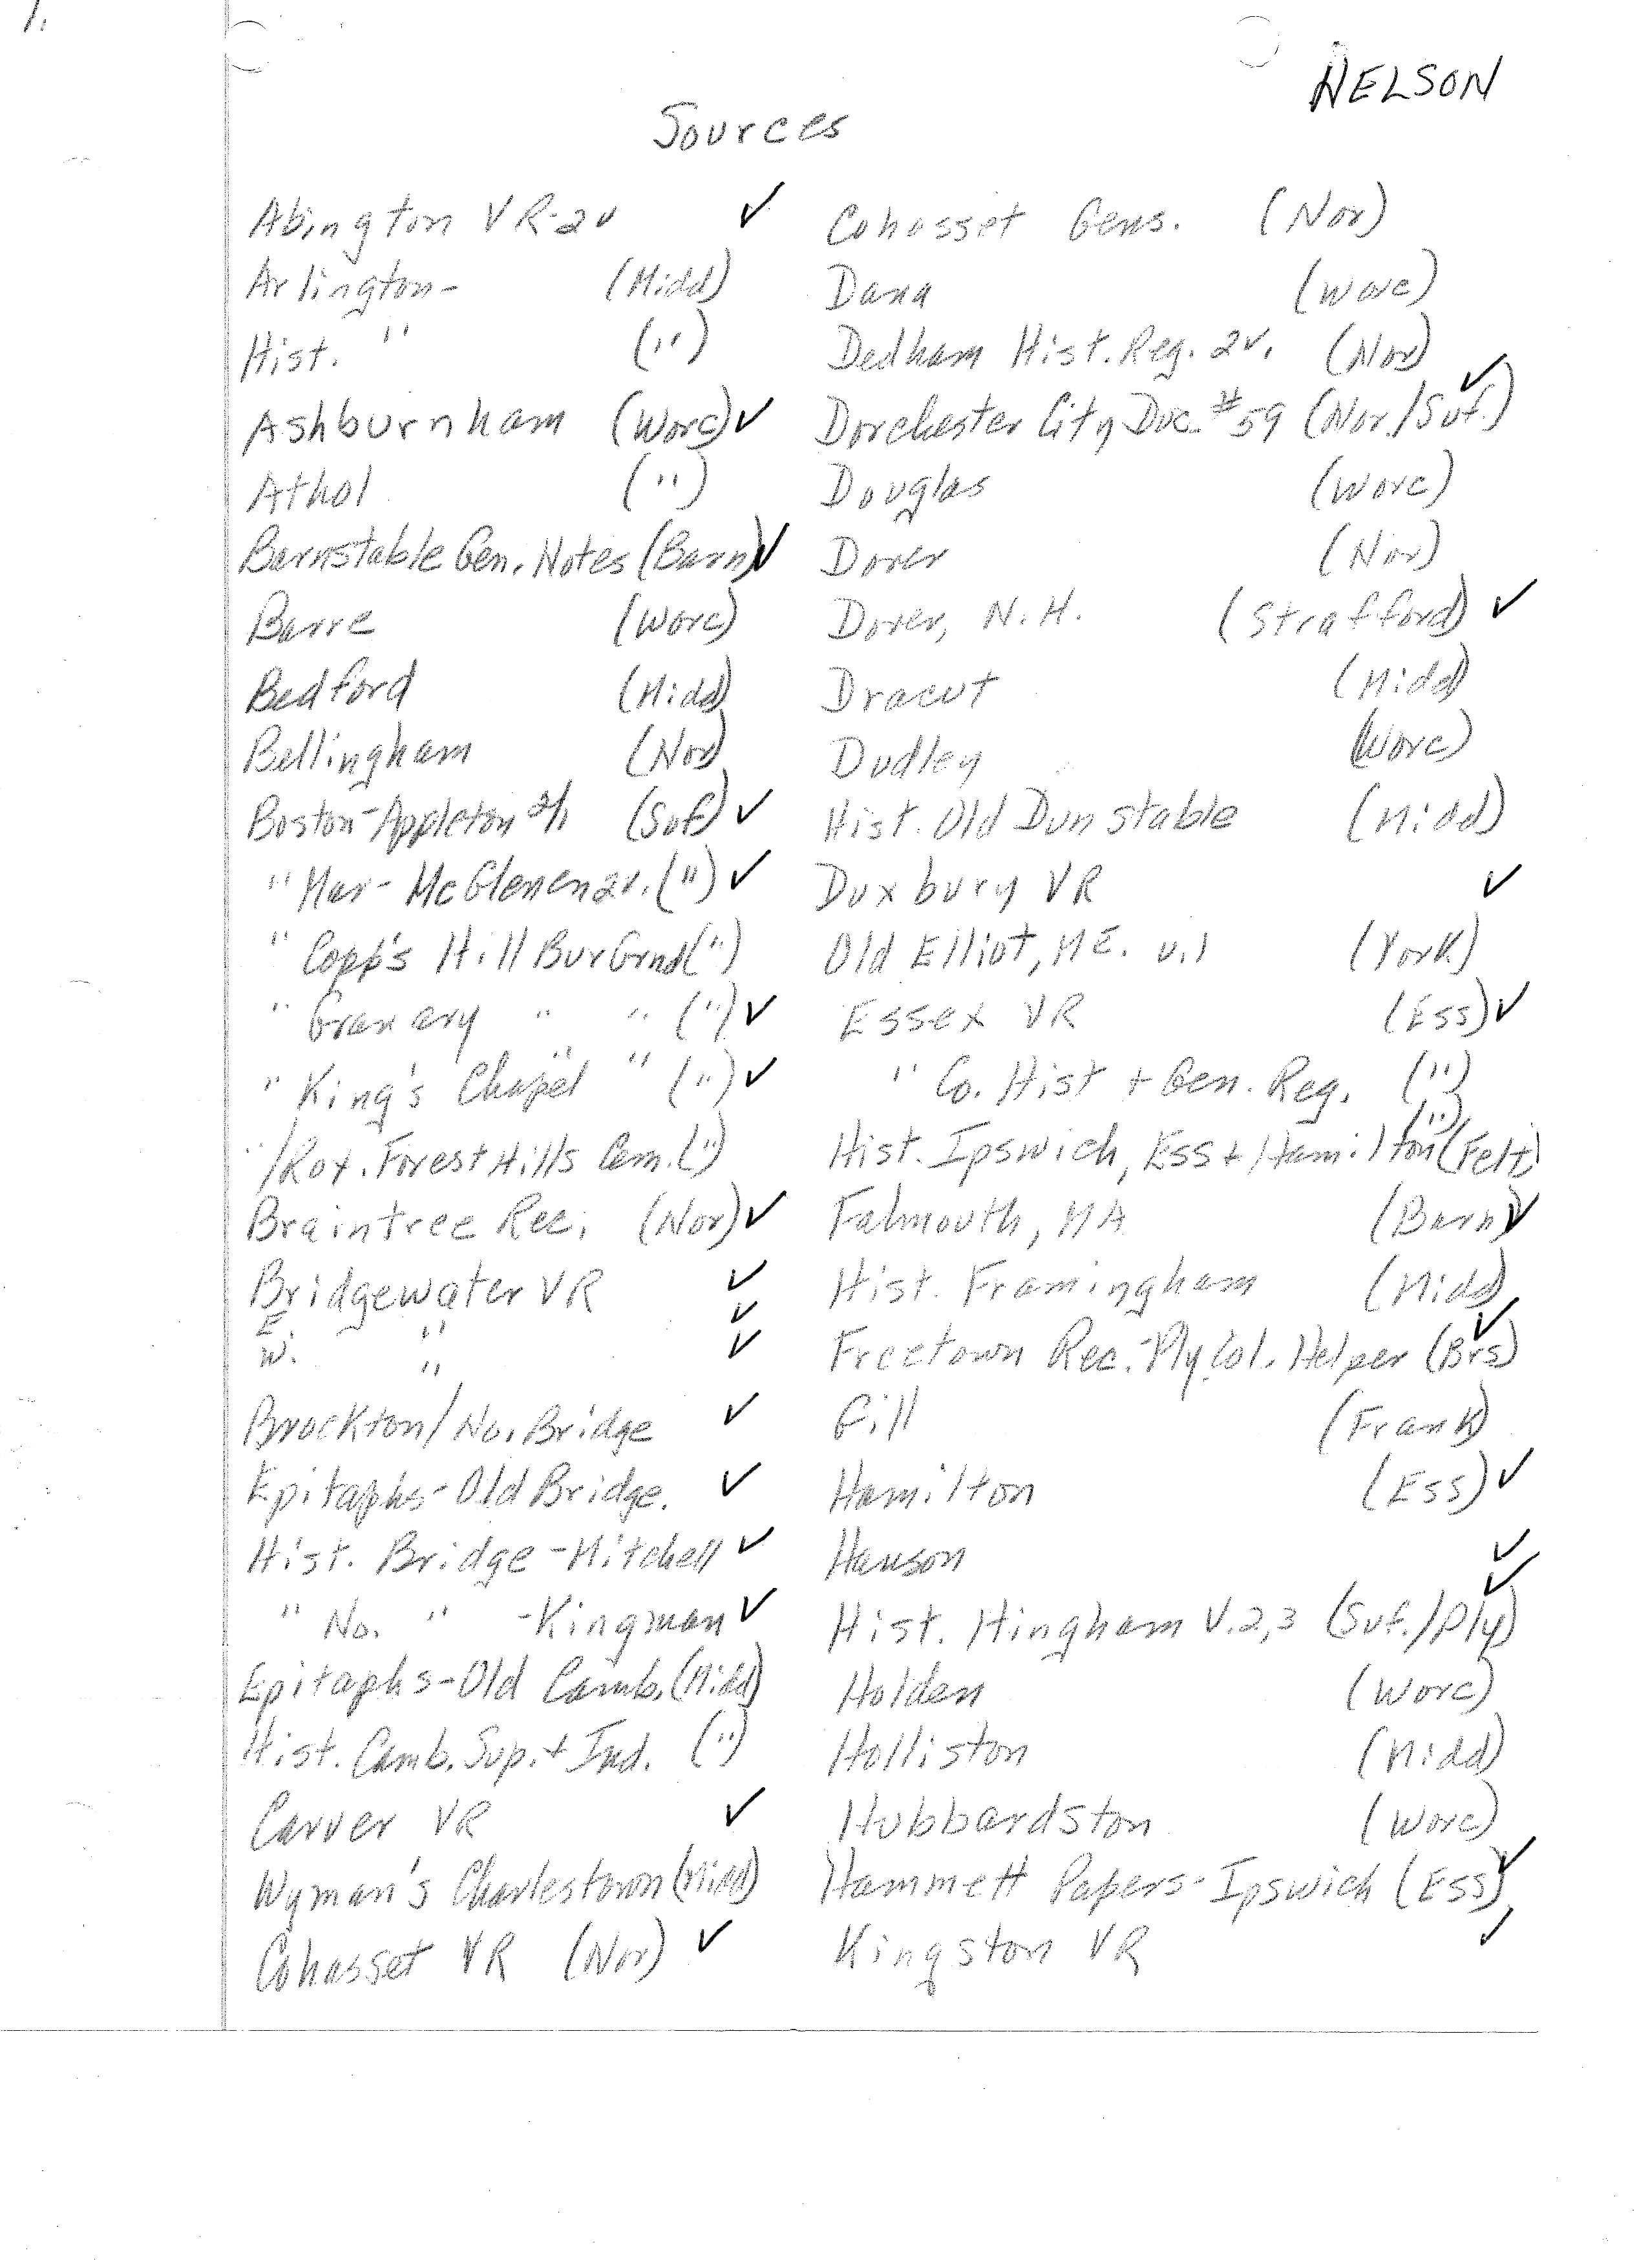 1.
NELSON
Sources
Abington VR-2v ✓
Arlington- (Midd)
Hist. " (")
Ashburnham (Worc) ✓
Athol (")
Barnstable Gen. Notes (Barn) ✓
Barre (Worc)
Bedford (Midd)
Bellingham (Nor)
Boston-Appleton (Suf.) ✓
" Mar- McGlenen 2v. (") ✓
" Copp's Hill Bur Grnd (")
" Granary " " (") ✓
" King's Chapel " " (") ✓
"/Rox. Forest Hills Cem. (")
Braintree Rec. (Nor) ✓
Bridgewater VR ✓
E. " ✓
W. " ✓
Brockton/No. Bridge ✓
Epitaphs-Old Bridge. ✓
Hist. Bridge-Mitchell ✓
" No. " -Kingman ✓
Epitaphs-Old Camb. (Midd)
Hist. Camb. Sup. + Ind. (")
Carver VR ✓
Wyman's Charlestown (Midd)
Cohasset VR (Nor) ✓
Cohasset Gens. (Nor)
Dana (Worc)
Dedham Hist. Reg. 2v. (Nor)
Dorchester City Doc. #59 (Nor./Suf.) ✓
Douglas (Worc)
Dover (Nor)
Dover, N.H. (Strafford) ✓
Dracut (Midd)
Dudley (Worc)
Hist. Old Dunstable (Midd)
Duxbury VR ✓
Old Elliot, ME. v.1 (York)
Essex VR (Ess) ✓
" Co. Hist + Gen. Reg. (")
Hist. Ipswich, Ess + Hamilton (Felt) (")
Falmouth, MA (Barn) ✓
Hist. Framingham (Midd)
Freetown Rec.-Ply. Col. Helper (Brs) ✓
Gill (Frank)
Hamilton (Ess) ✓
Hanson ✓
Hist. Hingham V.2,3 (Suf./Ply) ✓
Holden (Worc)
Holliston (Midd)
Hubbardston (Worc)
Hammett Papers-Ipswich (Ess) ✓
Kingston VR ✓